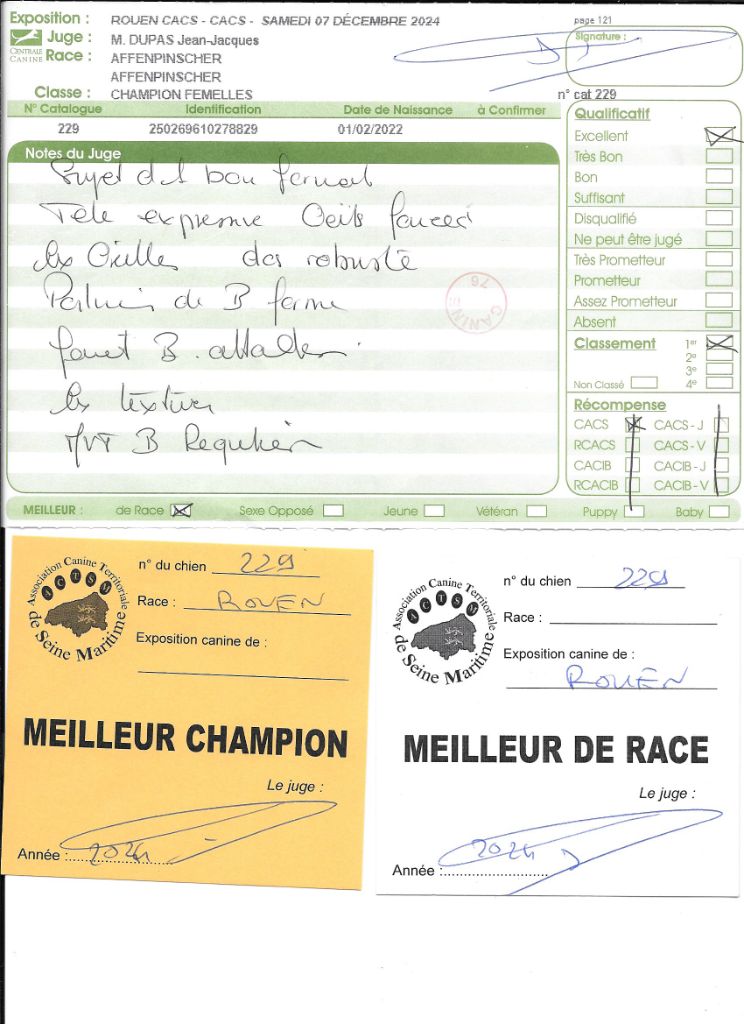 Exposition : ROUEN CACS - CACS - SAMEDI 07 DÉCEMBRE 2024
page 121
CENTRALE CANINE
Juge : M. DUPAS Jean-Jacques
Signature :
Race : AFFENPINSCHER
AFFENPINSCHER
Classe : CHAMPION FEMELLES
n° cat 229
N° Catalogue Identification Date de Naissance à Confirmer
229 250269610278829 01/02/2022
Notes du Juge
Sujet d S bon format
Tete expressive Oeils
Bx Oreilles dos robuste
Poitrine de B forme
fouet B. attaché
Bx texture
MVT B Regulier
CANIN
76
Qualificatif
Excellent
Très Bon
Bon
Suffisant
Disqualifié
Ne peut être jugé
Très Prometteur
Prometteur
Assez Prometteur
Absent
Classement 1er
2e
3e
Non Classé 4e
Récompense
CACS CACS - J
RCACS CACS - V
CACIB CACIB - J
RCACIB CACIB - V
MEILLEUR : de Race Sexe Opposé Jeune Vétéran Puppy Baby
Association Canine Territoriale
ACTSM
de Seine Maritime
n° du chien 229
Race : ROUEN
Exposition canine de :
MEILLEUR CHAMPION
Le juge :
Année : 2024
Association Canine Territoriale
ACTSM
de Seine Maritime
n° du chien 229
Race :
Exposition canine de :
ROUEN
MEILLEUR DE RACE
Le juge :
Année : 2024